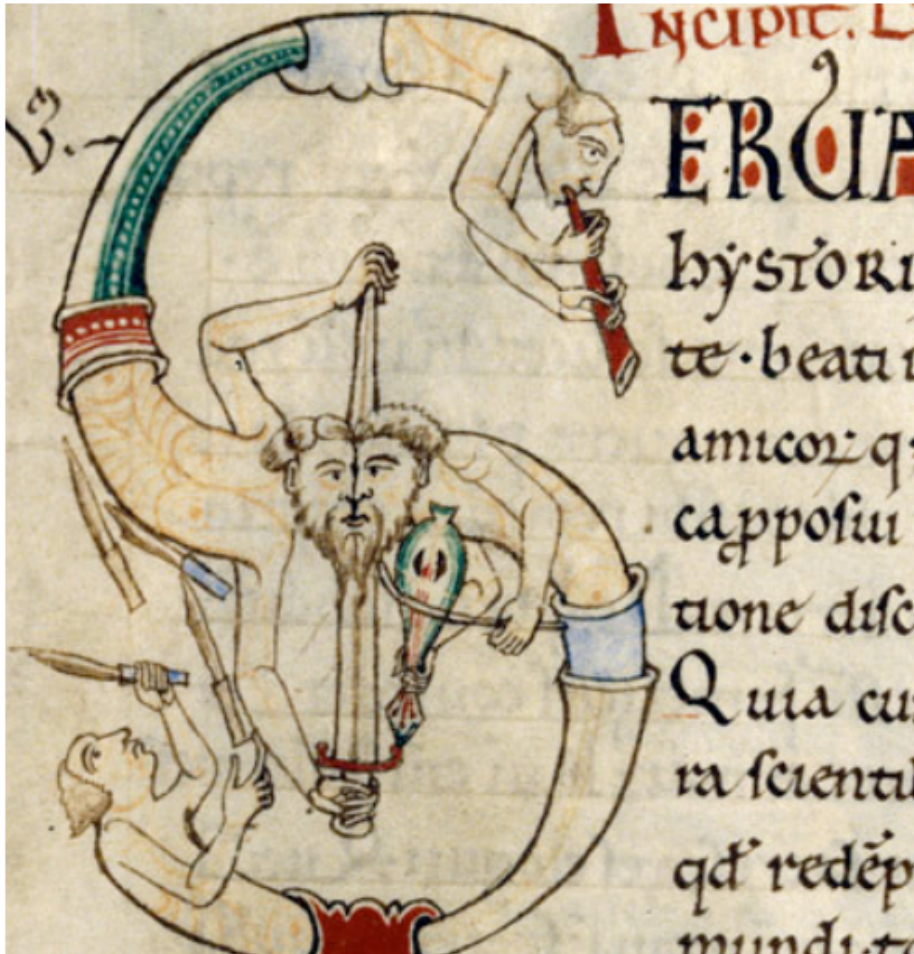 Incipit. L
SERUA
hystori
te · beati
amicorꝝ q
capposui
tione disc
Quia cu
ra scienti
qd redēp
mundi te